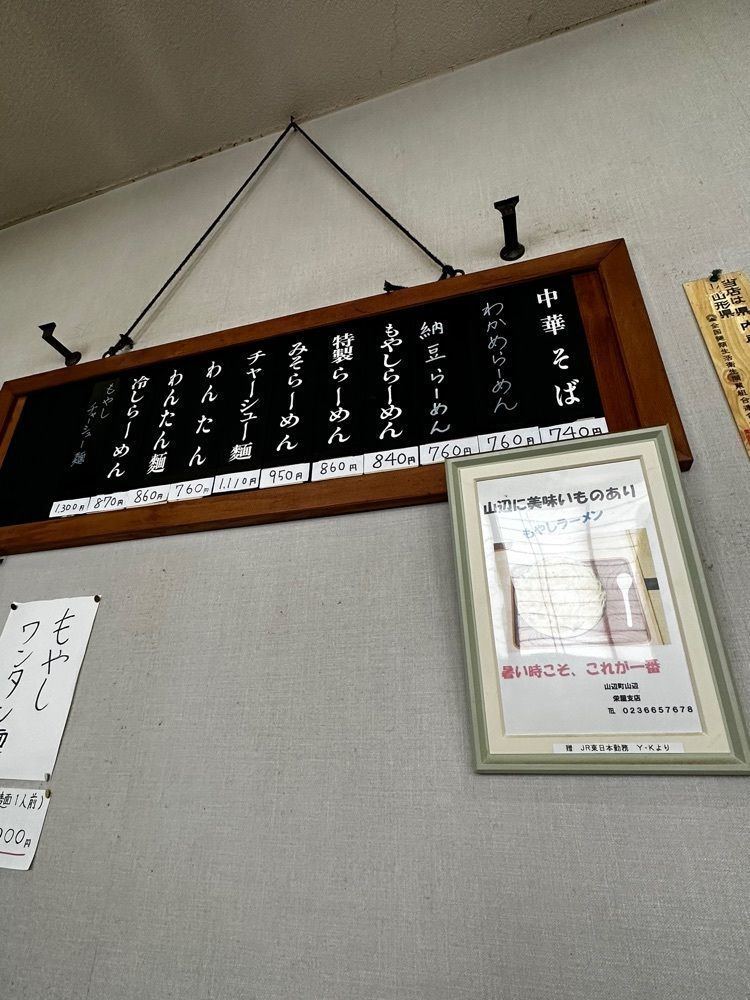 中華そば
740円
わかめらーめん
760円
納豆らーめん
760円
もやしらーめん
840円
特製らーめん
860円
みそらーめん
950円
チャーシュー麺
1,110円
わんたん
760円
わんたん麺
860円
冷しらーめん
870円
もやし
チャーシュー麺
1,300円
山辺に美味いものあり
もやしラーメン
暑い時こそ、これが一番
山辺町山辺
栄屋支店
℡ 0236657678
贈 JR東日本勤務 Y・Kより
もやし
ワンタン麺
麺1人前)
900円
当店は
山形県
全国麺類生活衛生同業組合